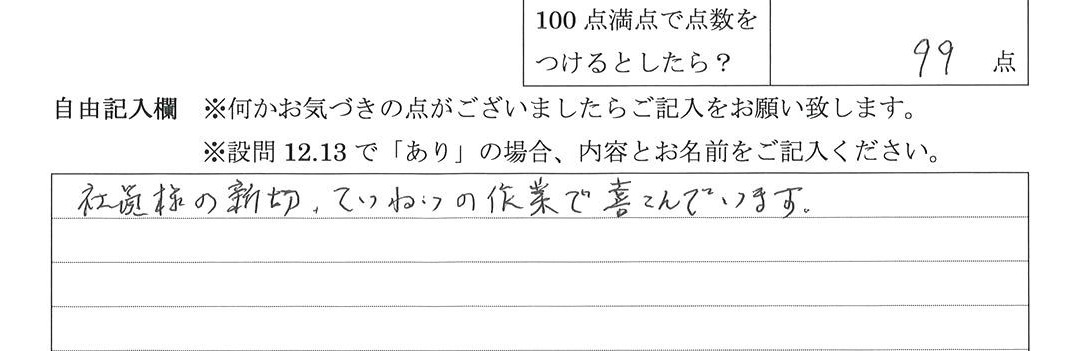 100 点満点で点数を
つけるとしたら？
99 点
自由記入欄 ※何かお気づきの点がございましたらご記入をお願い致します。
※設問 12.13 で「あり」の場合、内容とお名前をご記入ください。
社員様の新切、ていねいの作業で喜こんでいます。